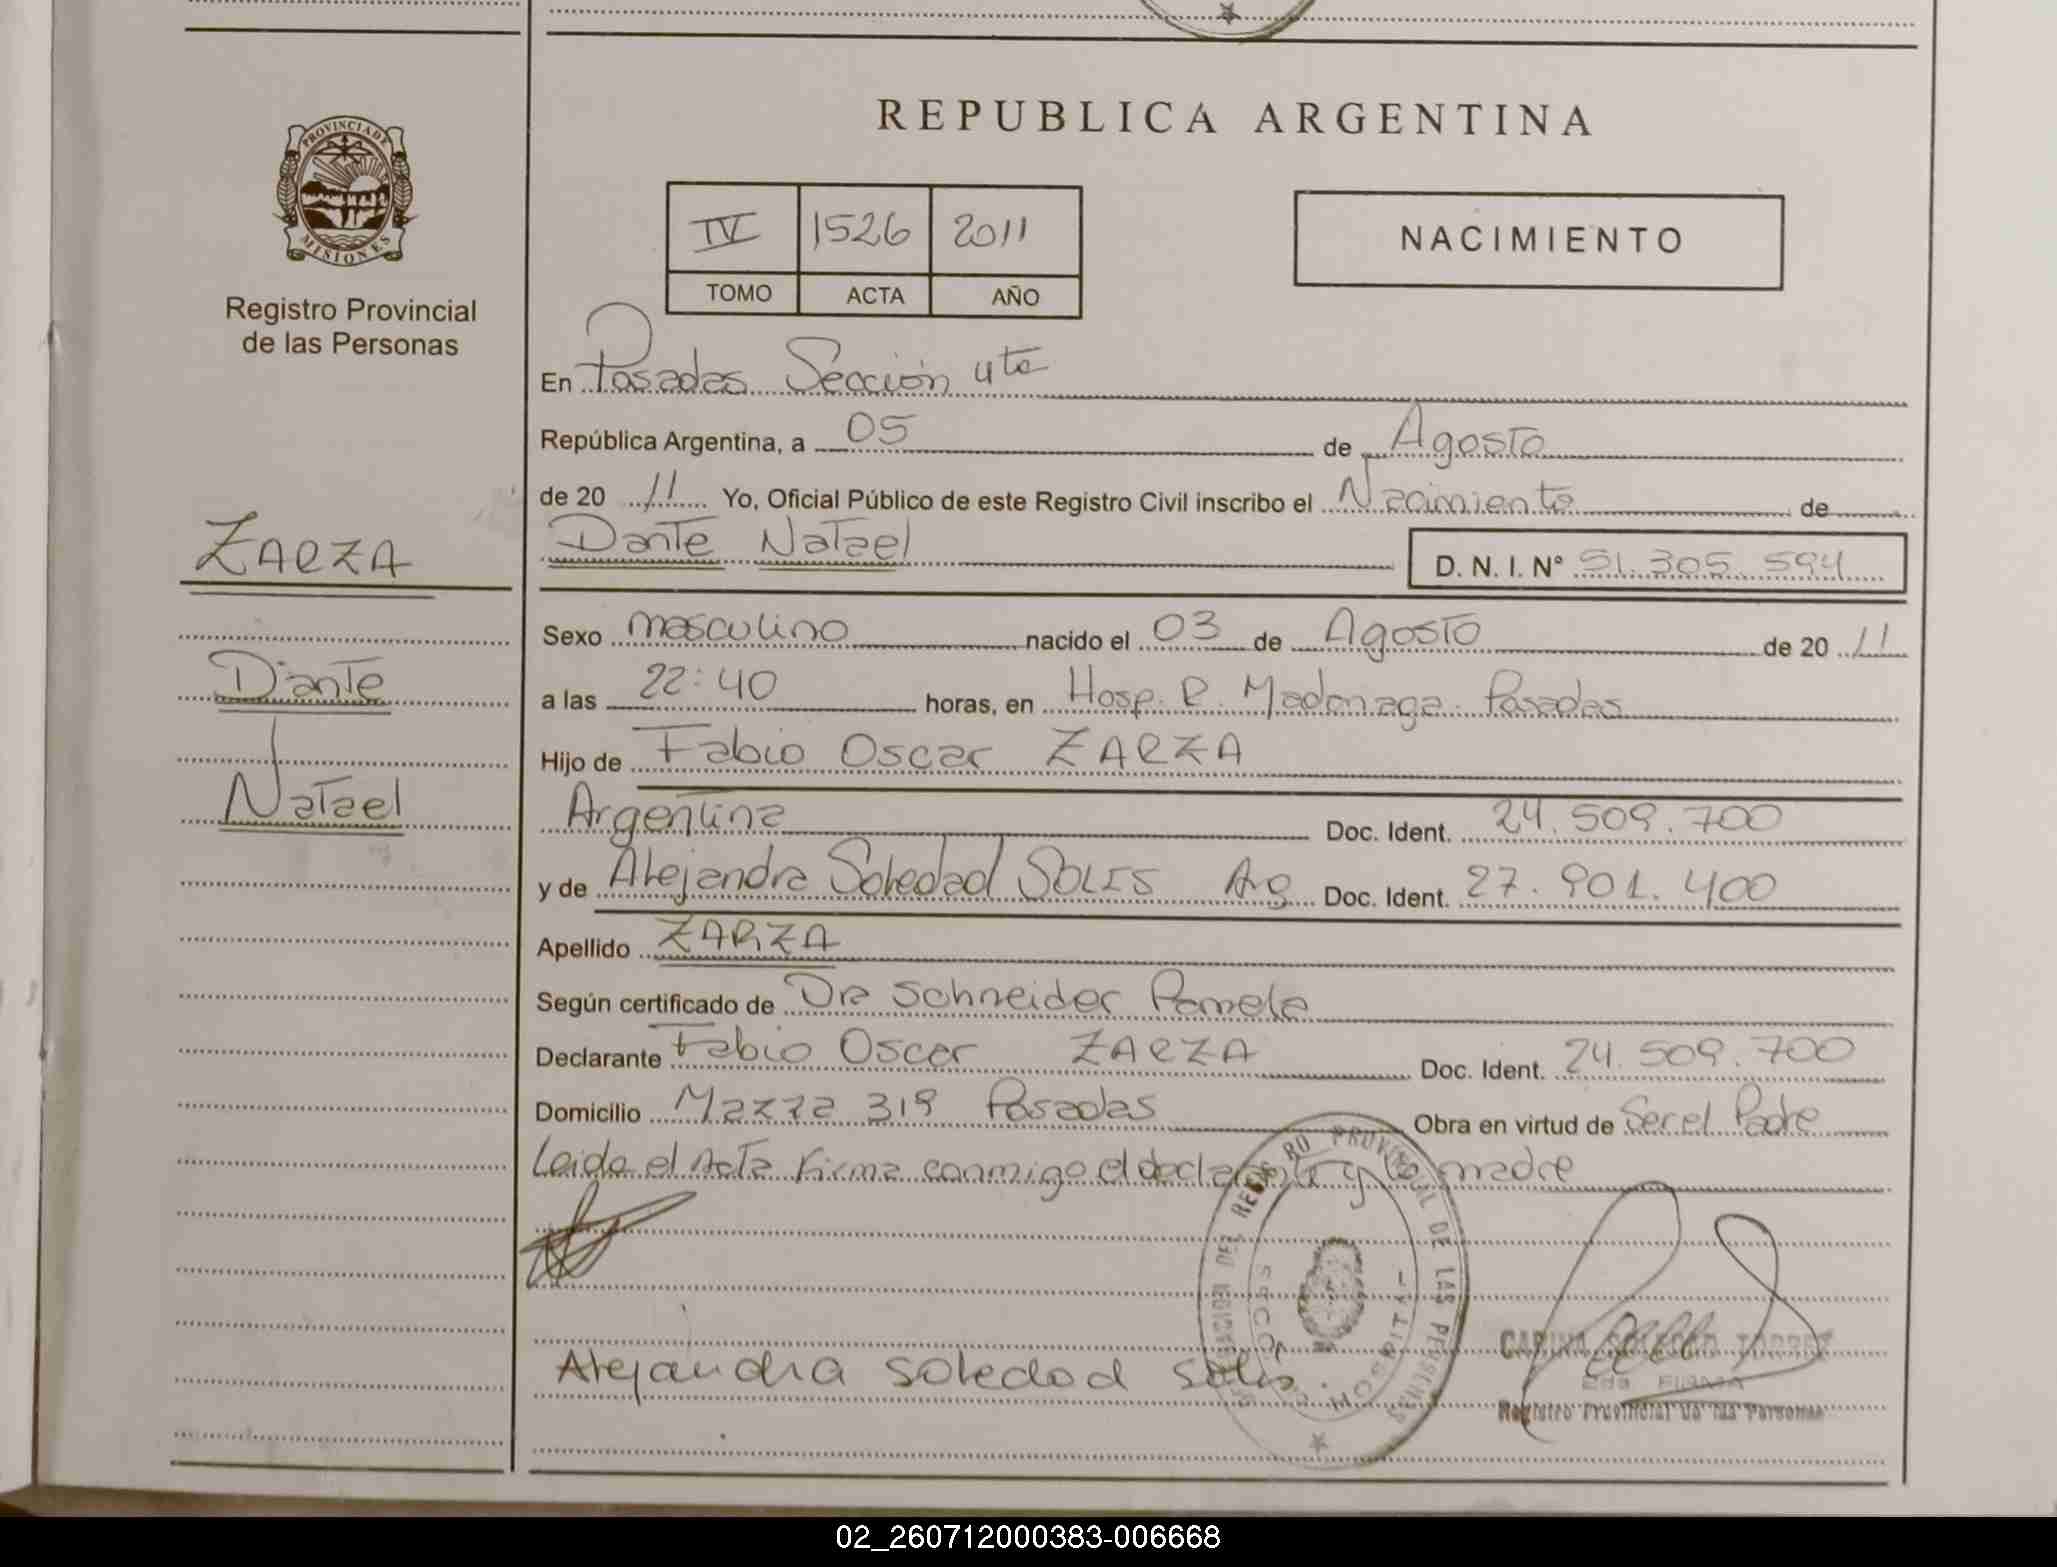 REPUBLICA ARGENTINA
PROVINCIA DE
MISIONES
Registro Provincial
de las Personas
IV 1526 2011
TOMO ACTA AÑO
NACIMIENTO
En Posadas Sección 4ta
República Argentina, a 05 de Agosto
de 20 11 Yo, Oficial Público de este Registro Civil inscribo el Nacimiento de
ZARZA
Dante Natael D. N. I. Nº 51.305.594
Sexo masculino nacido el 03 de Agosto de 20 11
Dante
a las 22:40 horas, en Hosp. R. Madariaga. Posadas
Hijo de Fabio Oscar ZARZA
Natael
Argentina Doc. Ident. 24.509.700
y de Alejandra Soledad SOLIS Arg Doc. Ident. 27.901.400
Apellido ZARZA
Según certificado de Dra Schneider Pamela
Declarante Fabio Oscar ZARZA Doc. Ident. 24.509.700
Domicilio Mazza 319 Posadas Obra en virtud de Ser el Padre
Leida el Acta Firma conmigo el declarante y la madre
REGISTRO PROVINCIAL DE LAS PERSONAS
HOSPITAL
Alejandra Soledad Solis
CARINA SOLEDAD TORRES
2da FIRMA
Registro Provincial de las Personas
02_260712000383-006668